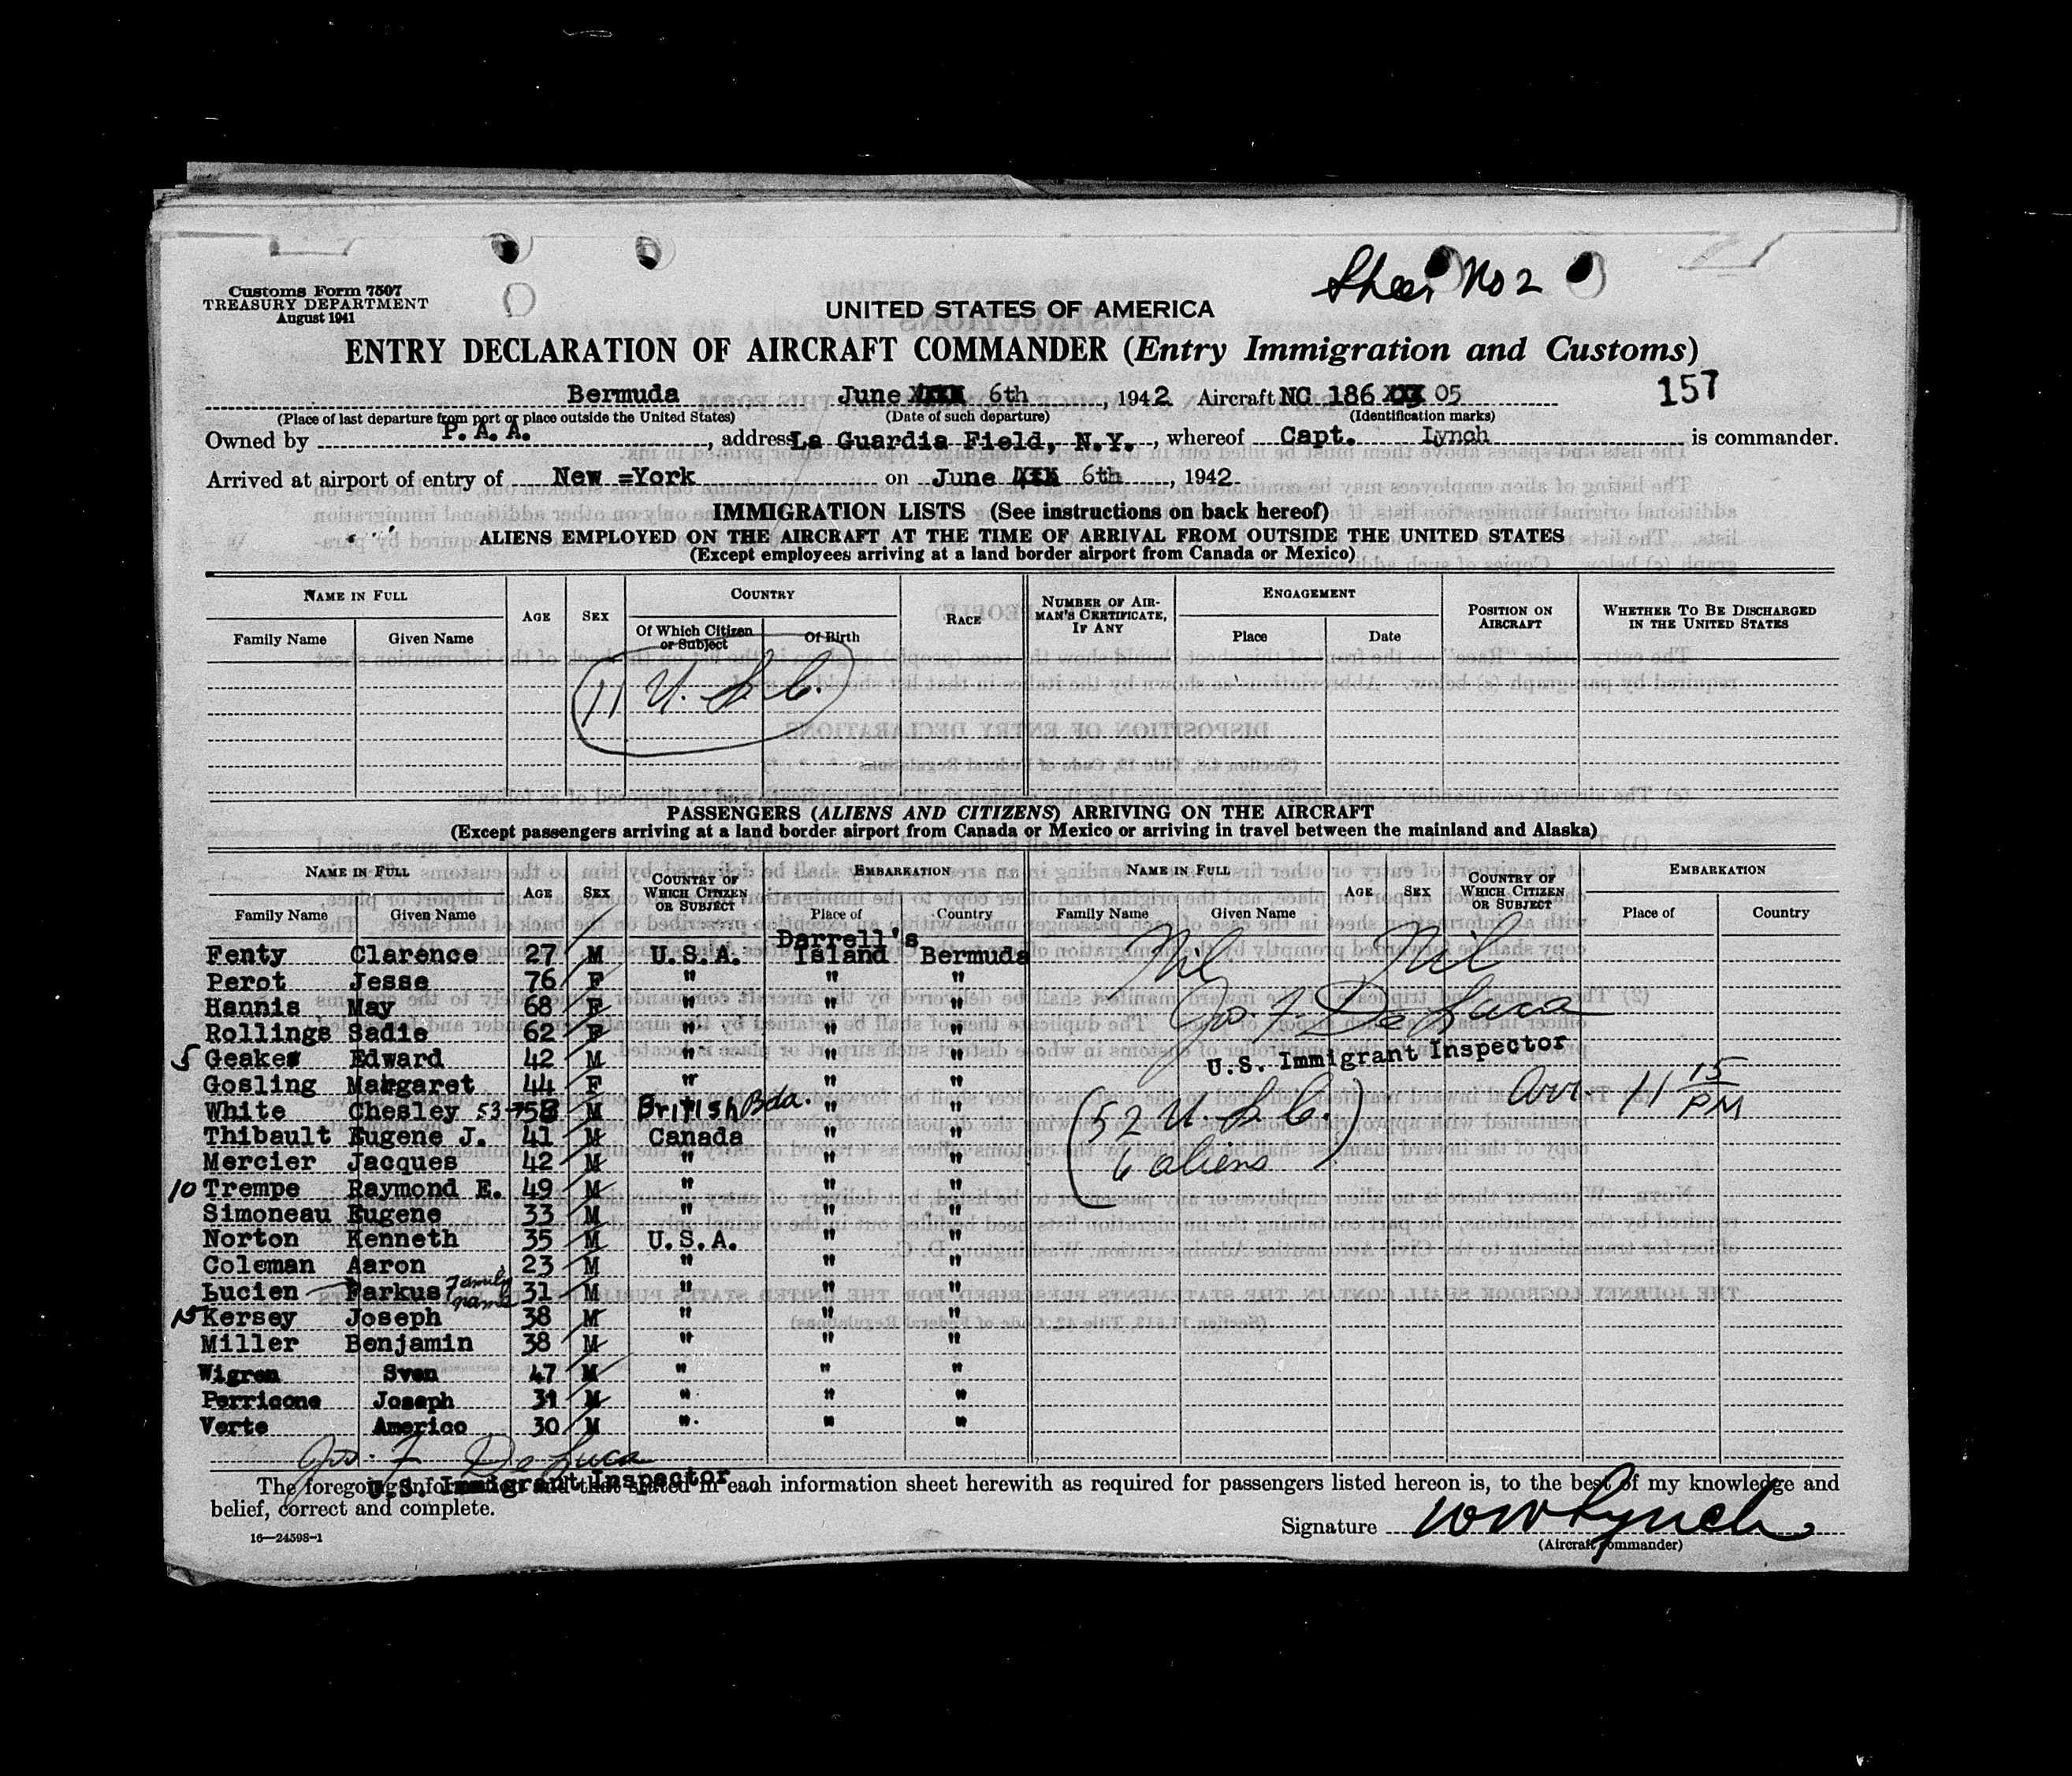 Sheet No 2
Customs Form 7507
TREASURY DEPARTMENT
August 1941
UNITED STATES OF AMERICA
ENTRY DECLARATION OF AIRCRAFT COMMANDER (Entry Immigration and Customs)
157
Bermuda June 6th, 1942 Aircraft NC 186 05
(Place of last departure from port or place outside the United States) (Date of such departure) (Identification marks)
Owned by P.A.A., address La Guardia Field, N.Y., whereof Capt. Lynch is commander.
Arrived at airport of entry of New =York on June 6th, 1942
IMMIGRATION LISTS (See instructions on back hereof)
ALIENS EMPLOYED ON THE AIRCRAFT AT THE TIME OF ARRIVAL FROM OUTSIDE THE UNITED STATES
(Except employees arriving at a land border airport from Canada or Mexico)
NAME IN FULL AGE SEX COUNTRY RACE NUMBER OF AIRMAN'S CERTIFICATE, IF ANY ENGAGEMENT POSITION ON AIRCRAFT WHETHER TO BE DISCHARGED IN THE UNITED STATES
Family Name Given Name Of Which Citizen or Subject Of Birth Place Date
11 U.S.C.
PASSENGERS (ALIENS AND CITIZENS) ARRIVING ON THE AIRCRAFT
(Except passengers arriving at a land border airport from Canada or Mexico or arriving in travel between the mainland and Alaska)
NAME IN FULL AGE SEX COUNTRY OF WHICH CITIZEN OR SUBJECT EMBARKATION NAME IN FULL AGE SEX COUNTRY OF WHICH CITIZEN OR SUBJECT EMBARKATION
Family Name Given Name Place of Country Family Name Given Name Place of Country
Fenty Clarence 27 M U.S.A. Darrell's Island Bermuda Nil Nil
Perot Jesse 76 F " " "
Hannis May 68 F " " " Jos. F. De Luca
Rollings Sadie 62 F " " "
5 Geakes Edward 42 M " " " U.S. Immigrant Inspector
Gosling Margaret 44 F " " " Arr 11 15 PM
White Chesley 53 M British Bda. " " 52 U.S.C.
Thibault Eugene J. 41 M Canada " "
Mercier Jacques 42 M " " " 6 aliens
10 Trempe Raymond E. 49 M " " "
Simoneau Eugene 33 M " " "
Norton Kenneth 35 M U.S.A. " "
Coleman Aaron 23 M " " "
Lucien Farkus family name 31 M " " "
15 Kersey Joseph 38 M " " "
Miller Benjamin 38 M " " "
Wigren Sven 47 M " " "
Perricone Joseph 31 M " " "
Verte Americo 30 M " " "
Jos. F De Luca
U.S. Immigrant Inspector
The foregoing information and that stated in each information sheet herewith as required for passengers listed hereon is, to the best of my knowledge and
belief, correct and complete.
Signature WW Lynch
(Aircraft commander)
16—24598-1